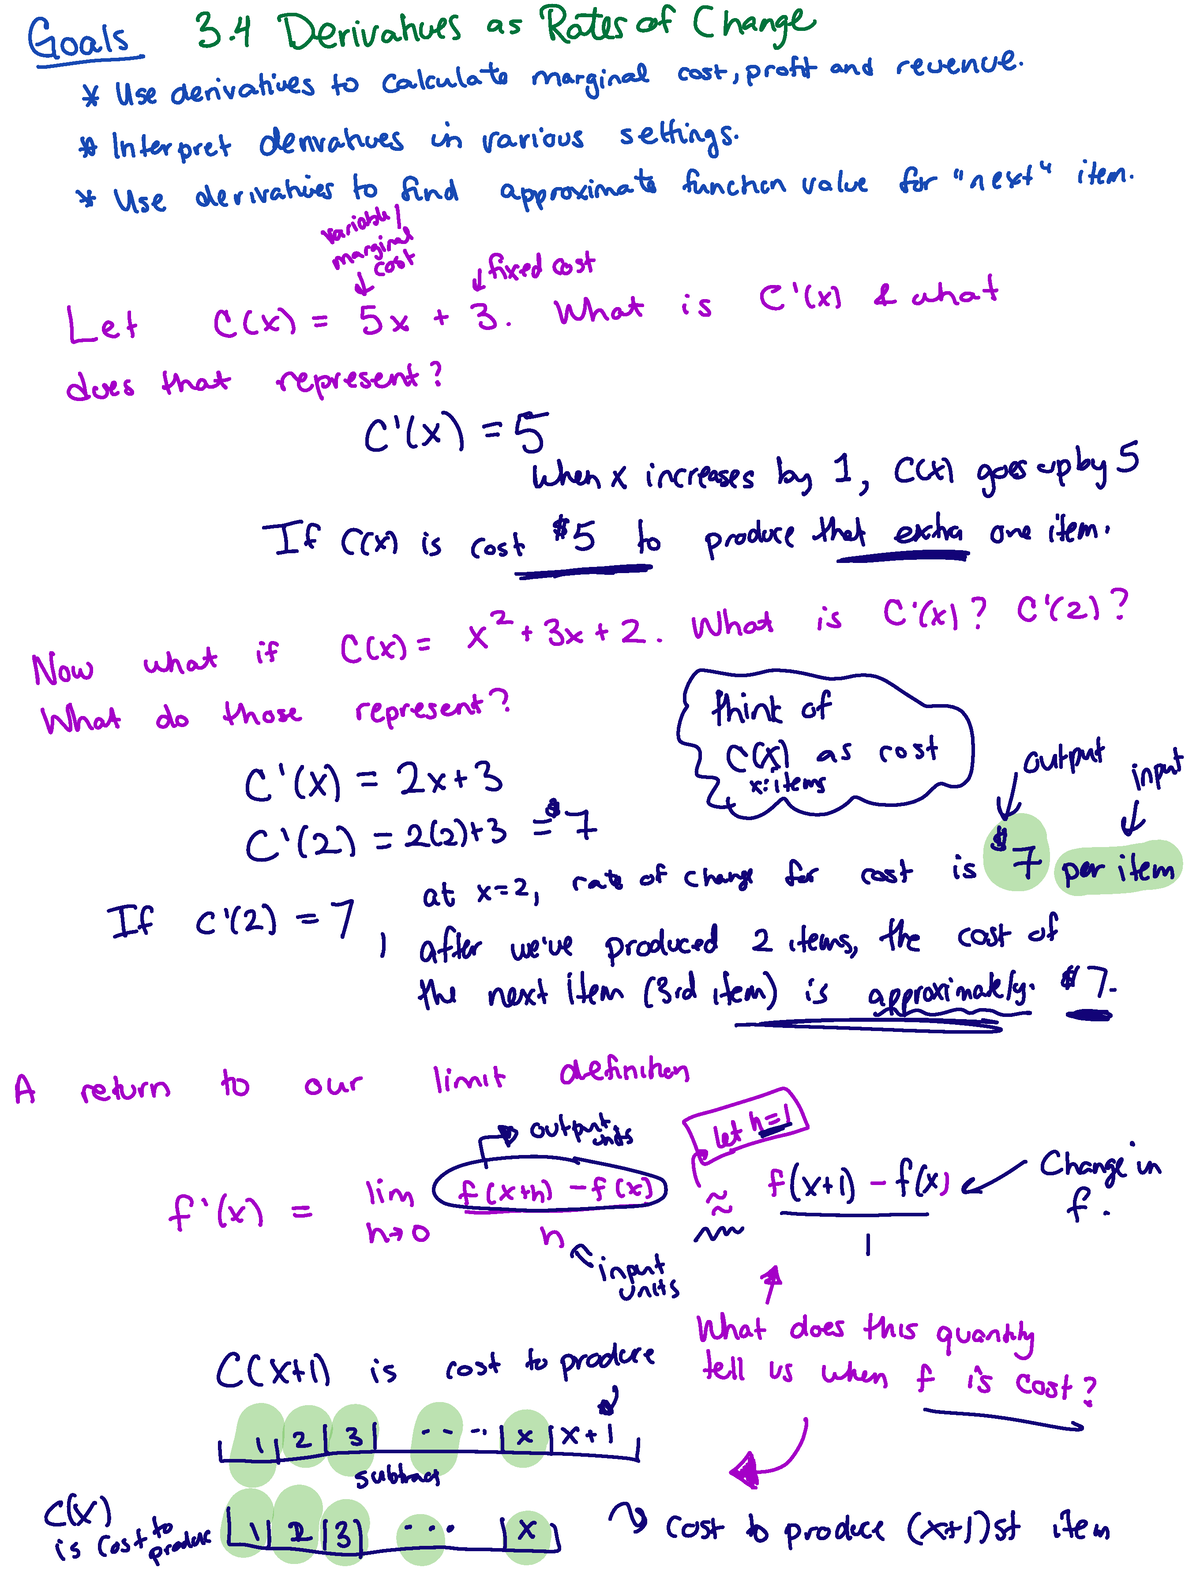 Goals 3.4 Derivatives as Rates of Change
* Use derivatives to calculate marginal cost, profit and revenue.
* Interpret derivatives in various settings.
* Use derivatives to find approximate function value for "next" item.
variable/
marginal
cost
fixed cost
Let C(x) = 5x + 3. What is C'(x) & what
does that represent?
C'(x) = 5
When x increases by 1, C(x) goes up by 5
If C(x) is cost $5 to produce that extra one item.
Now what if C(x) = x² + 3x + 2. What is C'(x)? C'(2)?
What do those represent?
think of
C(x) as cost
x: items
C'(x) = 2x+3
C'(2) = 2(2)+3 = $7
output
input
at x=2, rate of change for cost is $7 per item
If C'(2) = 7, after we've produced 2 items, the cost of
the next item (3rd item) is approximately $7.
A return to our limit definition
output units
let h=1
f'(x) = lim h→0 f(x+h) - f(x) / h ≈ f(x+1) - f(x) / 1
Change in
f.
input
units
What does this quantity
tell us when f is cost?
C(x+1) is cost to produce
1 | 2 | 3 | ... | x | x+1
subtract
C(x)
is cost to
produce
1 | 2 | 3 | ... | x
cost to produce (x+1)st item